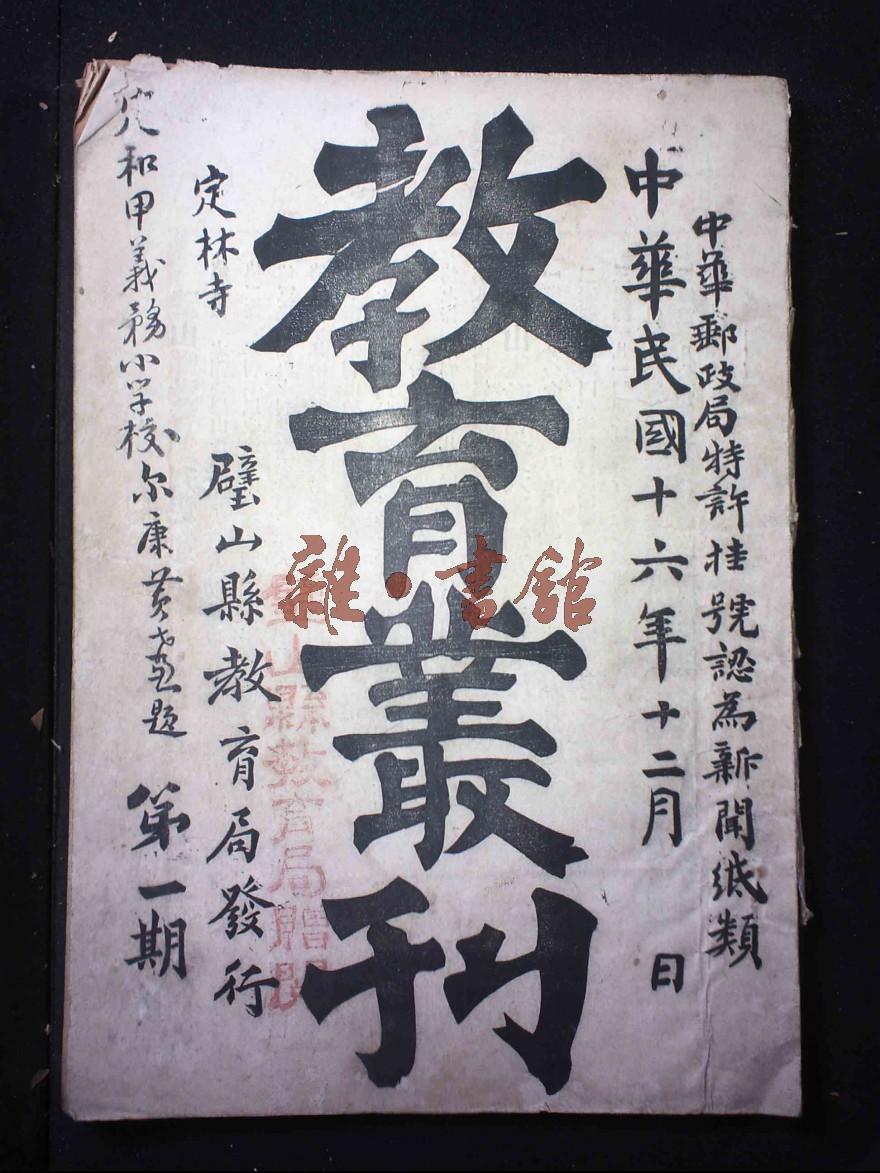 中華郵政局特許挂號認為新聞紙類
中華民國十六年十二月　日
教育叢刊
璧山縣教育局贈閱
定林寺
璧山縣教育局發行
和甲義務小学校尔康黃題
第一期
雜·書館